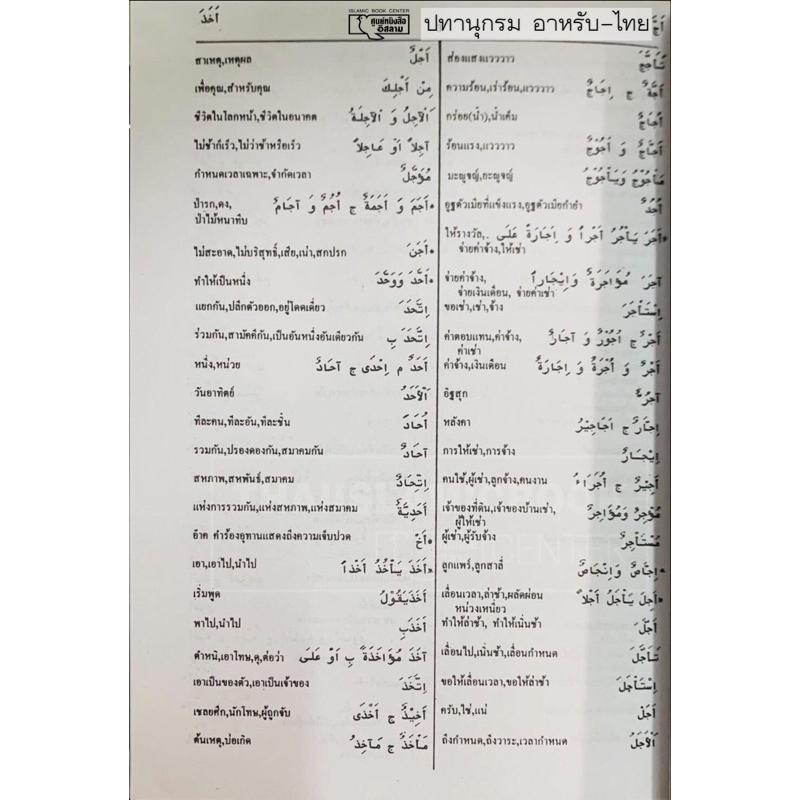 ISLAMIC BOOK CENTER
ศูนย์หนังสือ
อิสลาม
ปทานุกรม อาหรับ-ไทย
أَخَذَ
تَأَجَّجَ ส่องแสงแวววาว
أَجَّةٌ ج إِجَاجٌ ความร้อน,เร่าร้อน,แวววาว
أُجَاجٌ กร่อย(น้ำ),น้ำเค็ม
أَجَّاجٌ وَ أَجُوْجٌ ร้อนแรง,แวววาว
مَأْجُوْجُ وَيَأْجُوْجُ มะญูจญ์,ยะญูจญ์
أُجُدٌ อูฐตัวเมียที่แข็งแรง,อูฐตัวเมียกำยำ
أَجَرَ يَأْجُرُ أَجْراً وَ إِجَارَةً عَلَى ให้รางวัล,
จ่ายค่าจ้าง,ให้เช่า
آجَرَ مُؤَاجَرَةً وَإِيْجَاراً จ่ายค่าจ้าง,
จ่ายเงินเดือน, จ่ายค่าเช่า
اِسْتَأْجَرَ ขอเช่า,เช่า,จ้าง
أَجْرٌ ج أُجُوْرٌ وَ آجَارٌ ค่าตอบแทน,ค่าจ้าง,
ค่าเช่า
أَجْرٌ وَ أُجْرَةٌ وَ إِجَارَةٌ ค่าจ้าง,เงินเดือน
آجُرٌّ อิฐสุก
إِجَّارٌ ج أَجَاجِيْرُ หลังคา
إِيْجَارٌ การให้เช่า,การจ้าง
أَجِيْرٌ ج أُجَرَاءُ คนใช้,ผู้เช่า,ลูกจ้าง,คนงาน
مُؤْجِرٌ وَمُؤَاجِرٌ เจ้าของที่ดิน,เจ้าของบ้านเช่า,
ผู้ให้เช่า
مُسْتَأْجِرٌ ผู้เช่า,ผู้รับจ้าง
إِجَّاصٌ وَإِنْجَاصٌ ลูกแพร์,ลูกสาลี่
أَجِلَ يَأْجَلُ أَجَلاً เลื่อนเวลา,ล่าช้า,ผลัดผ่อน
หน่วงเหนี่ยว
أَجَّلَ ทำให้ล่าช้า, ทำให้เนิ่นช้า
تَأَجَّلَ เลื่อนไป,เนิ่นช้า,เลื่อนกำหนด
اِسْتَأْجَلَ ขอให้เลื่อนเวลา,ขอให้ล่าช้า
أَجَلْ ครับ,ใช่,แน่
اَلْأَجَلُ ถึงกำหนด,ถึงวาระ,เวลากำหนด
أَجْلٌ สาเหตุ,เหตุผล
مِنْ أَجْلِكَ เพื่อคุณ,สำหรับคุณ
اَلْآجِلُ وَ الْآجِلَةُ ชีวิตในโลกหน้า,ชีวิตในอนาคต
آجِلاً أَوْ عَاجِلاً ไม่ช้าก็เร็ว,ไม่ว่าช้าหรือเร็ว
مُؤَجَّلٌ กำหนดเวลาเฉพาะ,จำกัดเวลา
أَجَمَ وَ أَجَمَةٌ ج أُجُمٌ وَ آجَامٌ ป่ารก,ดง,
ป่าไม้หนาทึบ
أَجَنَ ไม่สะอาด,ไม่บริสุทธิ์,เสีย,เน่า,สกปรก
أَحَّدَ وَوَحَّدَ ทำให้เป็นหนึ่ง
اِتَّحَدَ แยกกัน,ปลีกตัวออก,อยู่โดดเดี่ยว
اِتَّحَدَ بِ ร่วมกัน,สามัคคีกัน,เป็นอันหนึ่งอันเดียวกัน
أَحَدٌ م إِحْدَى ج آحَادٌ หนึ่ง,หน่วย
اَلْأَحَدُ วันอาทิตย์
أُحَادَ ทีละคน,ทีละอัน,ทีละชิ้น
آحَادٌ รวมกัน,ปรองดองกัน,สมาคมกัน
اِتِّحَادٌ สหภาพ,สหพันธ์,สมาคม
أَحَدِيَّةٌ แห่งการรวมกัน,แห่งสหภาพ,แห่งสมาคม
أَخْ อ๊าค คำร้องอุทานแสดงถึงความเจ็บปวด
أَخَذَ يَأْخُذُ أَخْذاً เอา,เอาไป,นำไป
أَخَذَيَقُوْلُ เริ่มพูด
أَخَذَبِ พาไป,นำไป
آخَذَ مُؤَاخَذَةً بِ أَوْ عَلَى ตำหนิ,เอาโทษ,ดุ,ต่อว่า
اِتَّخَذَ เอาเป็นของตัว,เอาเป็นเจ้าของ
أَخِيْذٌ ج أَخْذَى เชลยศึก,นักโทษ,ผู้ถูกจับ
مَأْخَذٌ ج مَآخِذُ ต้นเหตุ,บ่อเกิด